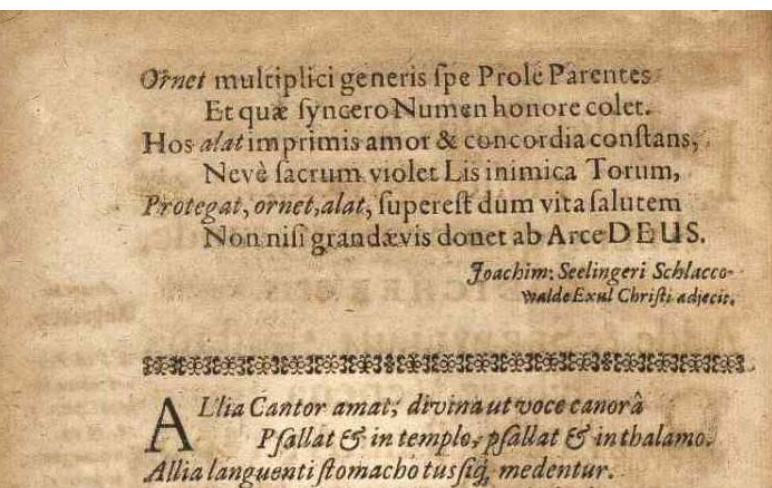 Ornet multiplici generis ſpe Prole Parentes
Et quæ ſyncero Numen honore colet.
Hos alat imprimis amor & concordia conſtans,
Nevè ſacrum violet Lis inimica Torum,
Protegat, ornet, alat, ſupereſt dum vita ſalutem
Non niſi grandævis donet ab Arce DEUS.
Joachim: Seelingeri Schlacco-
walde Exul Chriſti adjecit.
ALlia Cantor amat; divina ut voce canorâ
Pſallat & in templo, pſallat & in thalamo.
Allia languenti ſtomacho tusſiq́; medentur.